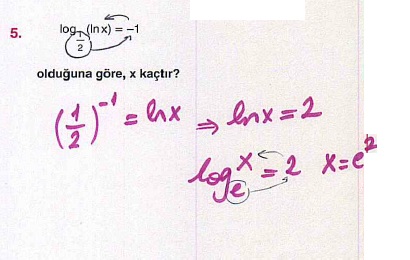 5. log_{1/2}(lnx) = -1
olduğuna göre, x kaçtır?
(1/2)^{-1} = lnx ⇒ lnx = 2
log_e x = 2 x = e^2